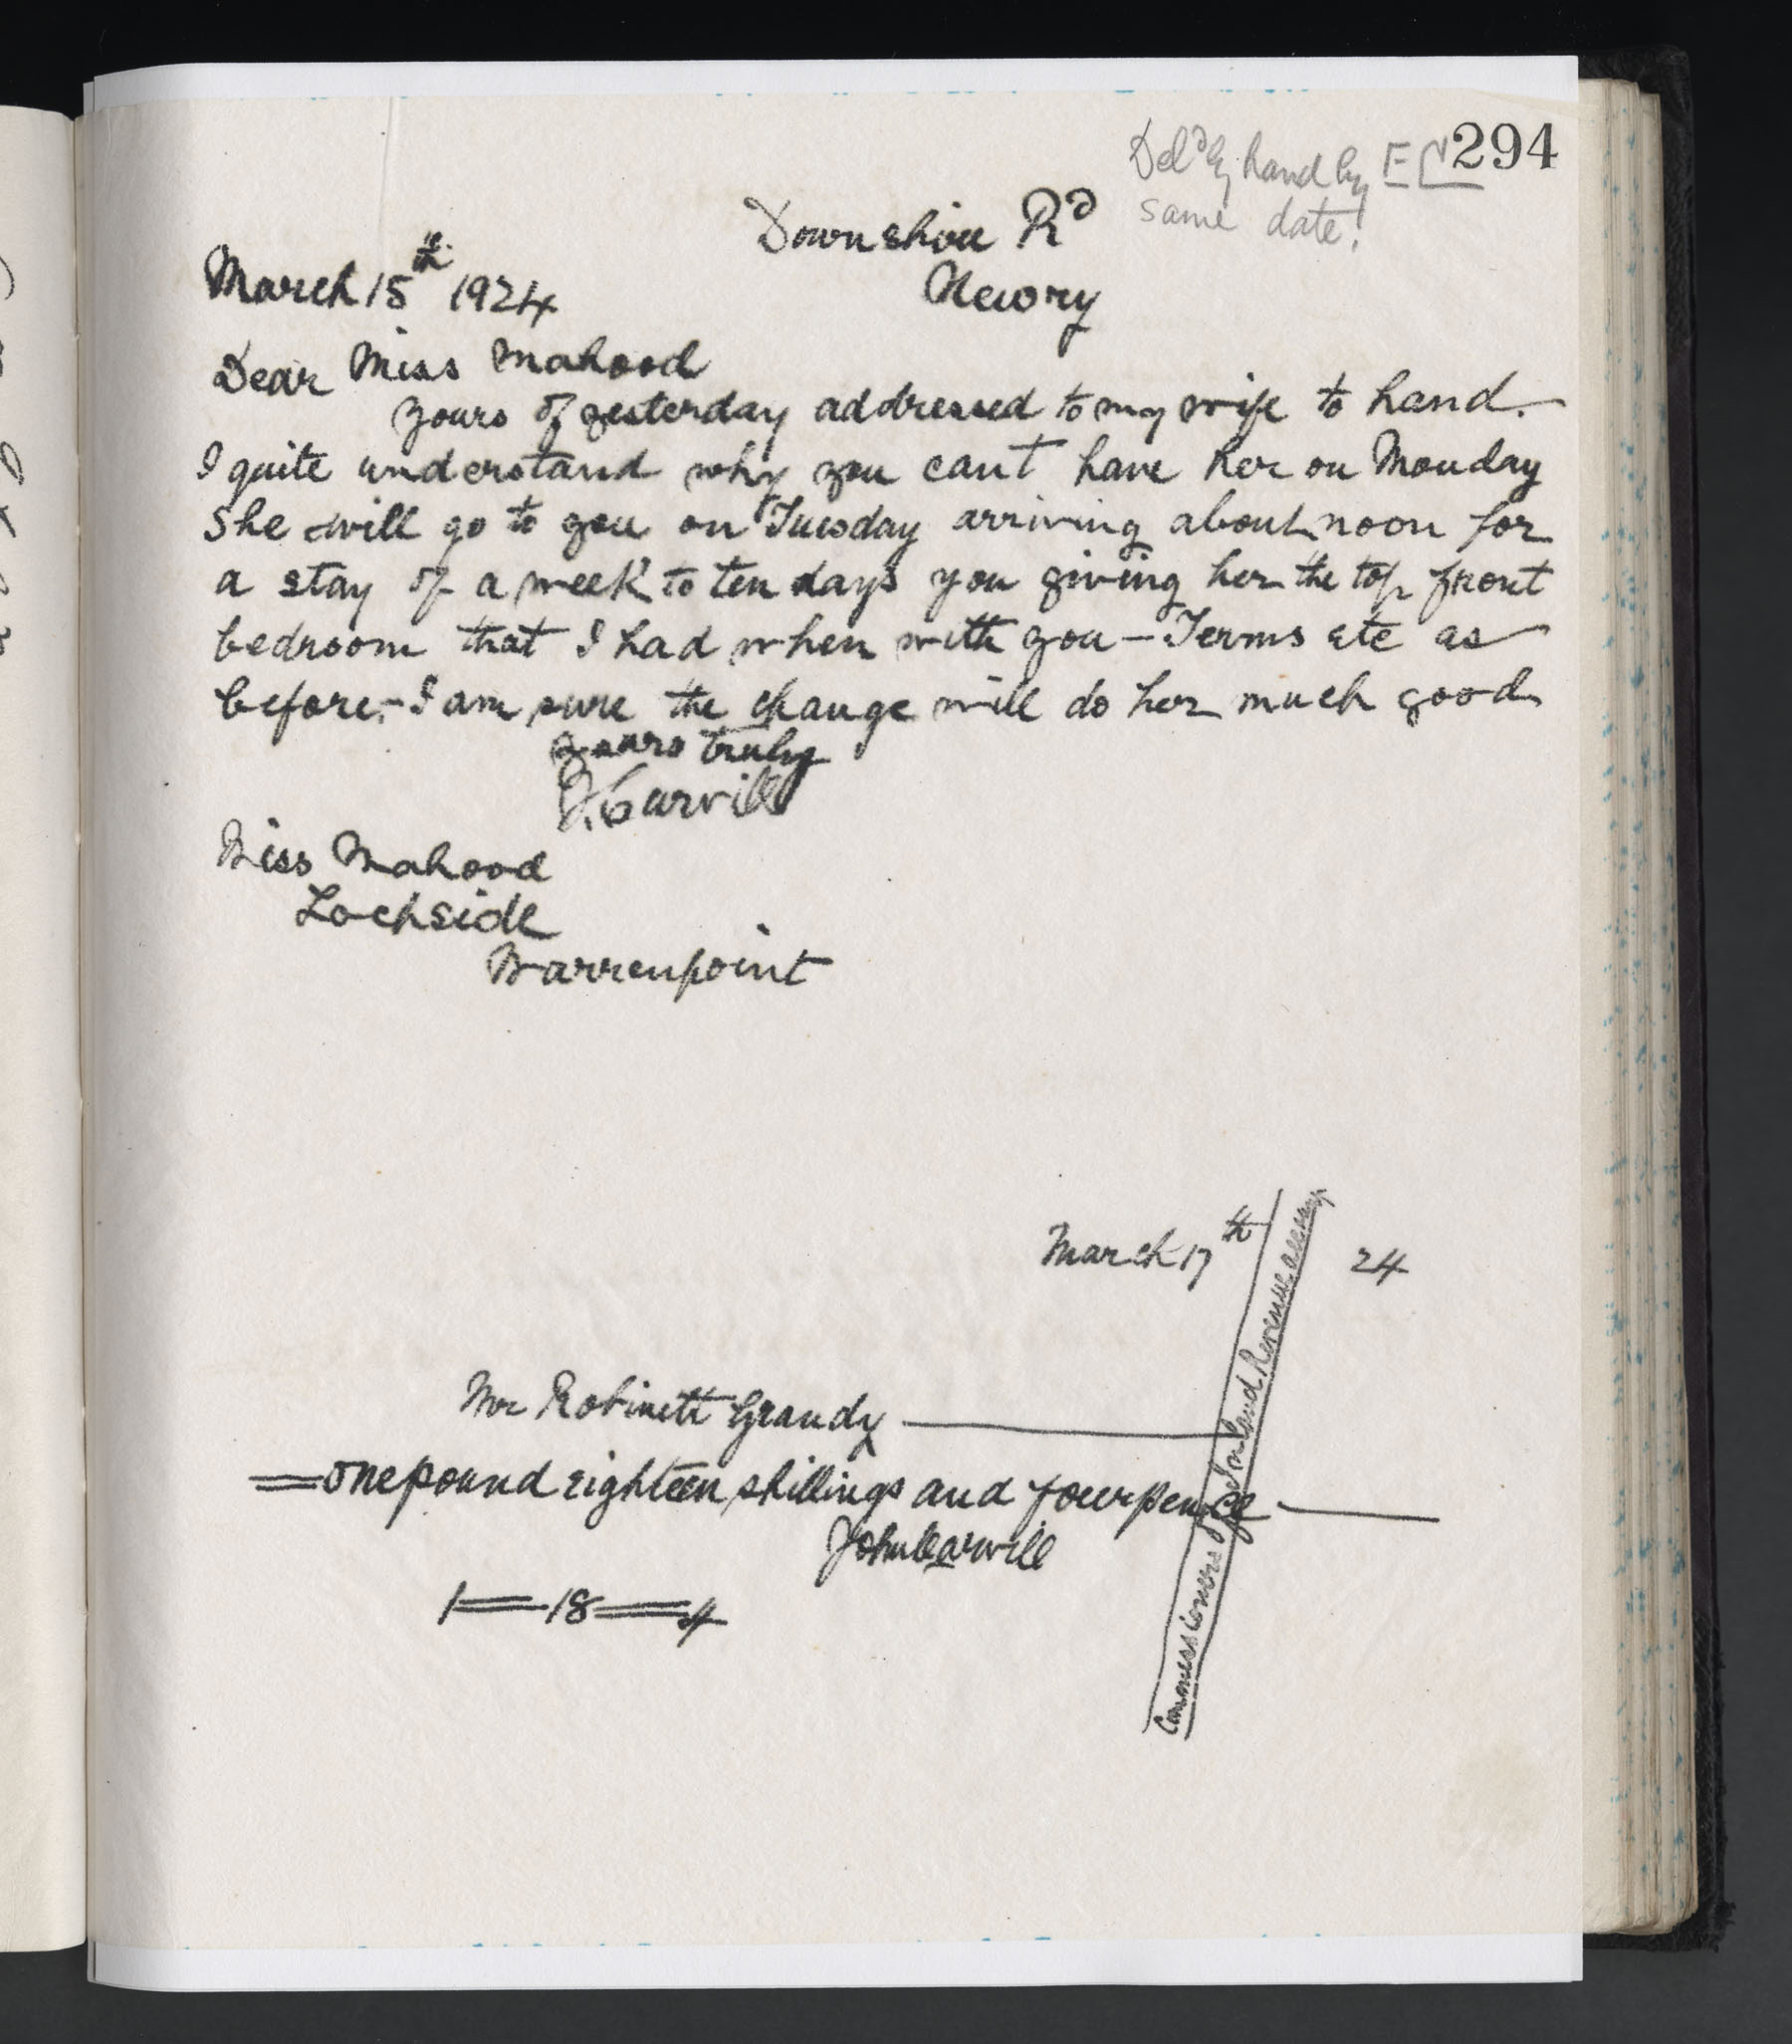 294
Del'd by hand by
same date!
Downshire Rd
Newry
March 15th 1924
Dear Miss Mahood
yours of yesterday addressed to my wife to hand.
I quite understand why you cant have her on Monday
She will go to you on Tuesday arriving about noon for
a stay of a week to ten days you giving her the top front
bedroom that I had when with you – Terms etc as
before. – I am sure the change will do her much good
yours truly
J. Carvill
Miss Mahood
Lochside
Warrenpoint
March 17th 24
Mr Robinett Grandy
= one pound eighteen shillings and fourpence
John Carvill
1 = 18 = 4
Commissioners of Inland Revenue